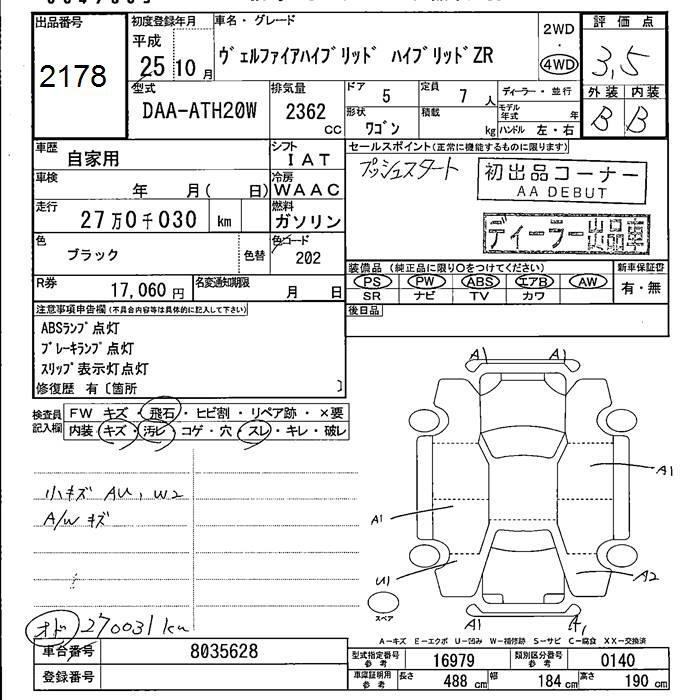 出品番号 初度登録年月 車名・グレード 2WD 評価点
2178 平成 25年 10月 ヴェルファイアハイブリッド ハイブリッドZR 4WD 3,5
型式 DAA-ATH20W 排気量 2362 CC ドア 5 定員 7人 ディーラー・並行 外装 内装
形状 ワゴン 積載 kg モデル年式 年 ハンドル 左・右 B B
車歴 自家用 シフト IAT セールスポイント(正常に機能するものに限ります)
プッシュスタート 初出品コーナー
AA DEBUT
車検 年 月( 日) 冷房 WAAC
走行 27万0千030 km 燃料 ガソリン ディーラー出品車
色 ブラック 色替 色コード 202
装備品(純正品に限り○をつけてください) 新車保証書
PS PW ABS エアB AW 有・無
SR ナビ TV カワ
R券 17,060円 名変通知期限 月 日
後日品
注意事項申告欄(不具合内容等は具体的に記入して下さい)
ABSランプ点灯
ブレーキランプ点灯
スリップ表示灯点灯
修復歴 有〔箇所 〕
検査員記入欄 FW キズ・飛石・ヒビ割・リペア跡・×要
内装 キズ・汚レ・コゲ・穴・スレ・キレ・破レ
小キズ AU, W2
A/Wキズ
オド 270031km
A1 A1
A1
A1
U1 A2
A1 A1
スペア
A-キズ E-エクボ U-凹み W-補修跡 S-サビ C-腐食 XX-交換済
車台番号 8035628 型式指定番号 参考 16979 類別区分番号 参考 0140
登録番号 車庫証明用 参考 長さ 488 cm 幅 184 cm 高さ 190 cm